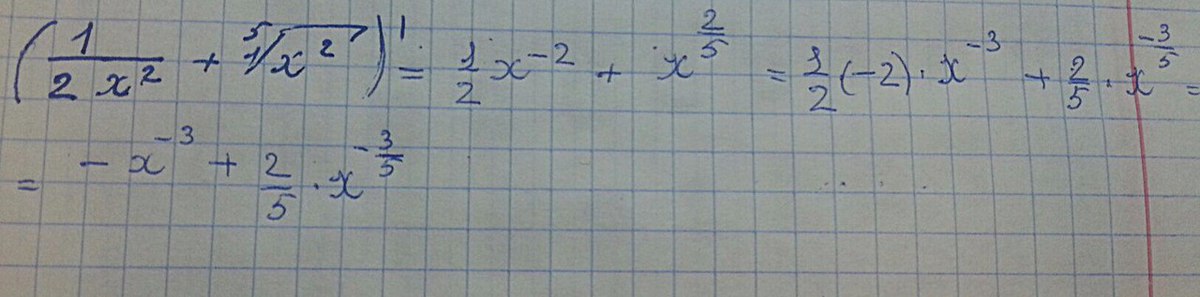 (1/(2 x²) + ⁵√x²)' = 1/2 x⁻² + x^(2/5) = 1/2 (-2) · x⁻³ + 2/5 · x^(-3/5) =
= - x⁻³ + 2/5 · x^(-3/5)